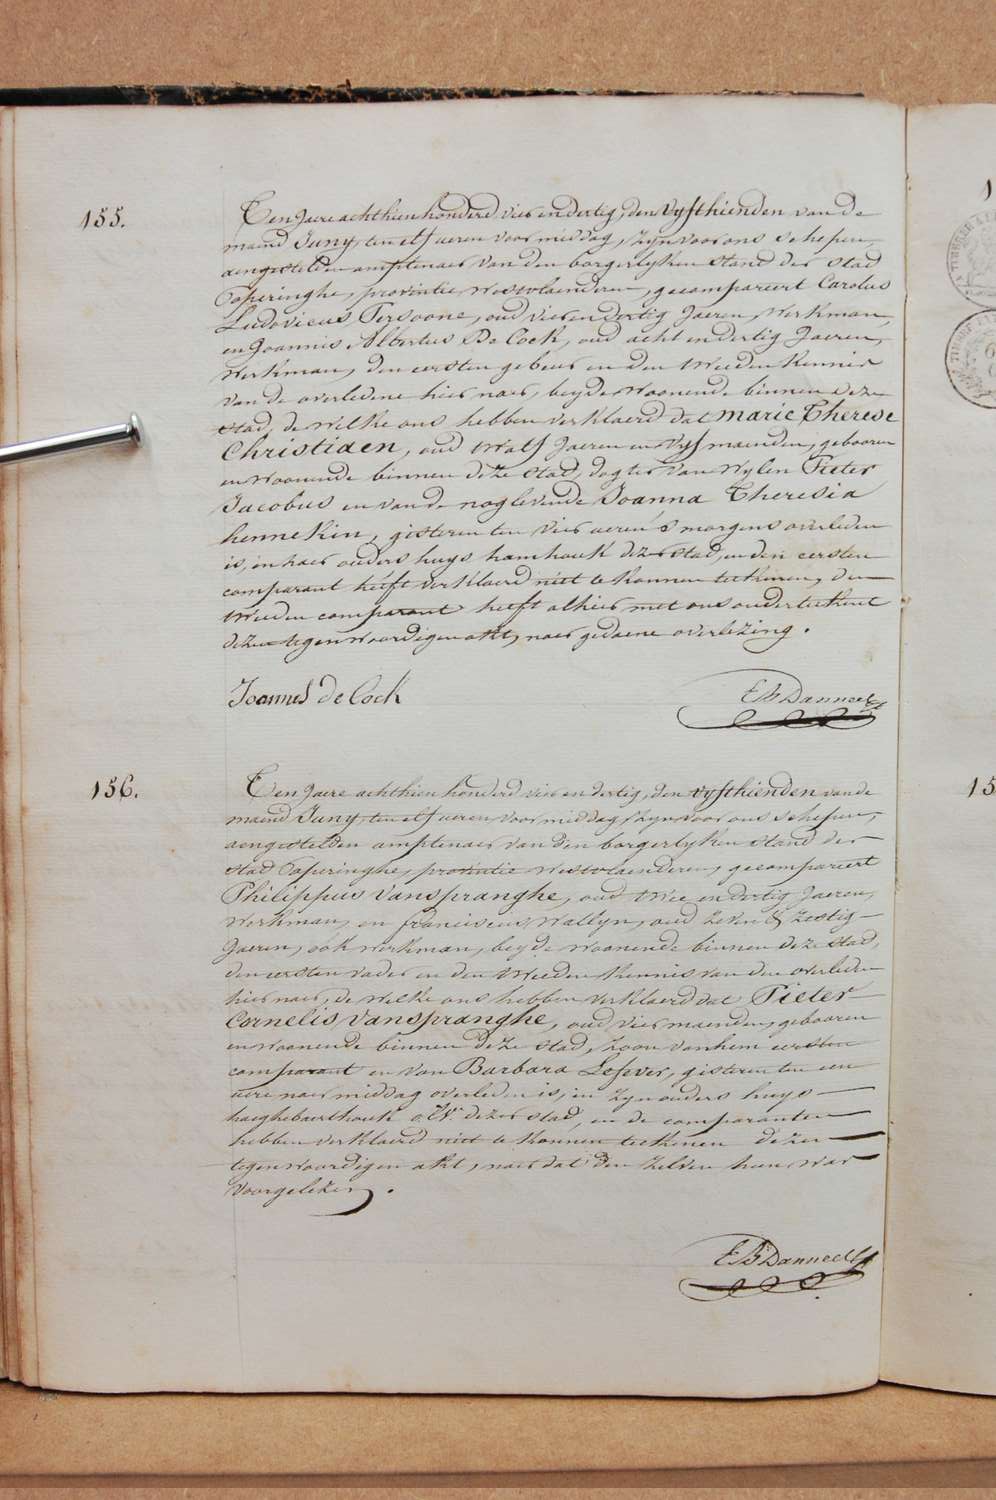 155.
Ten Jaere achthien honderd vier en dertig, den vyfthienden van de
maend Juny, ten elf ueren voor middag, Zyn voor ons schepen,
aengestelden amptenaer van den borgerlyken stand der stad
Poperinghe, provintie Westvlaenderen, gecompareert Carolus
Ludovicus Persoone, oud vier en dertig Jaeren, Werkman,
en Joannis Albertus De Cock, oud acht en dertig Jaeren,
Werkman, den eersten gebeur en den tweeden kennis
van de overledene hier naer, beyde woonende binnen deze
stad, de welke ons hebben verklaerd dat Marie Therese
Christiaen, oud twalf Jaeren en vyf maenden, gebooren
en woonende binnen deze stad, dogter van wylen Pieter
Jacobus en van de nog levende Joanna Theresia
hennekin, gisteren ten vier ueren 's morgens overleden
is, in haer ouders huys hamhouk dezer stad, en den eersten
comparant heeft verklaerd niet te konnen teekenen, den
tweeden comparant heeft alhier met ons onderteekent
dezen tegenwoordigen akt, naer gedaene overlezing.
Joannes de Cock
E B Danneel
156.
Ten Jaere achthien honderd vier en dertig, den vyfthienden van de
maend Juny, ten elf ueren voor middag, Zyn voor ons schepen,
aengestelden amptenaer van den borgerlyken stand der
stad Poperinghe, provintie Westvlaenderen, gecompareert
Philippus Vanspranghe, oud twee en dertig Jaeren,
Werkman, en franciscus Wallyn, oud zeven & zestig
Jaeren, ook werkman, beyde woonende binnen deze stad,
den eersten vader en den tweeden kennis van den overleden
hier naer, de welke ons hebben verklaerd dat Pieter
Cornelis Vanspranghe, oud vier maenden, gebooren
en woonende binnen deze stad, zoon van hem eersten
comparant en van Barbara Lefever, gisteren ten een
uere naer middag overleden is, in zyn ouders huys
haeghebaerthouk dezer stad, en de comparanten
hebben verklaerd niet te konnen teekenen dezen
tegenwoordigen akt, naer dat den zelven hun was
voorgelezen.
E B Danneel
15